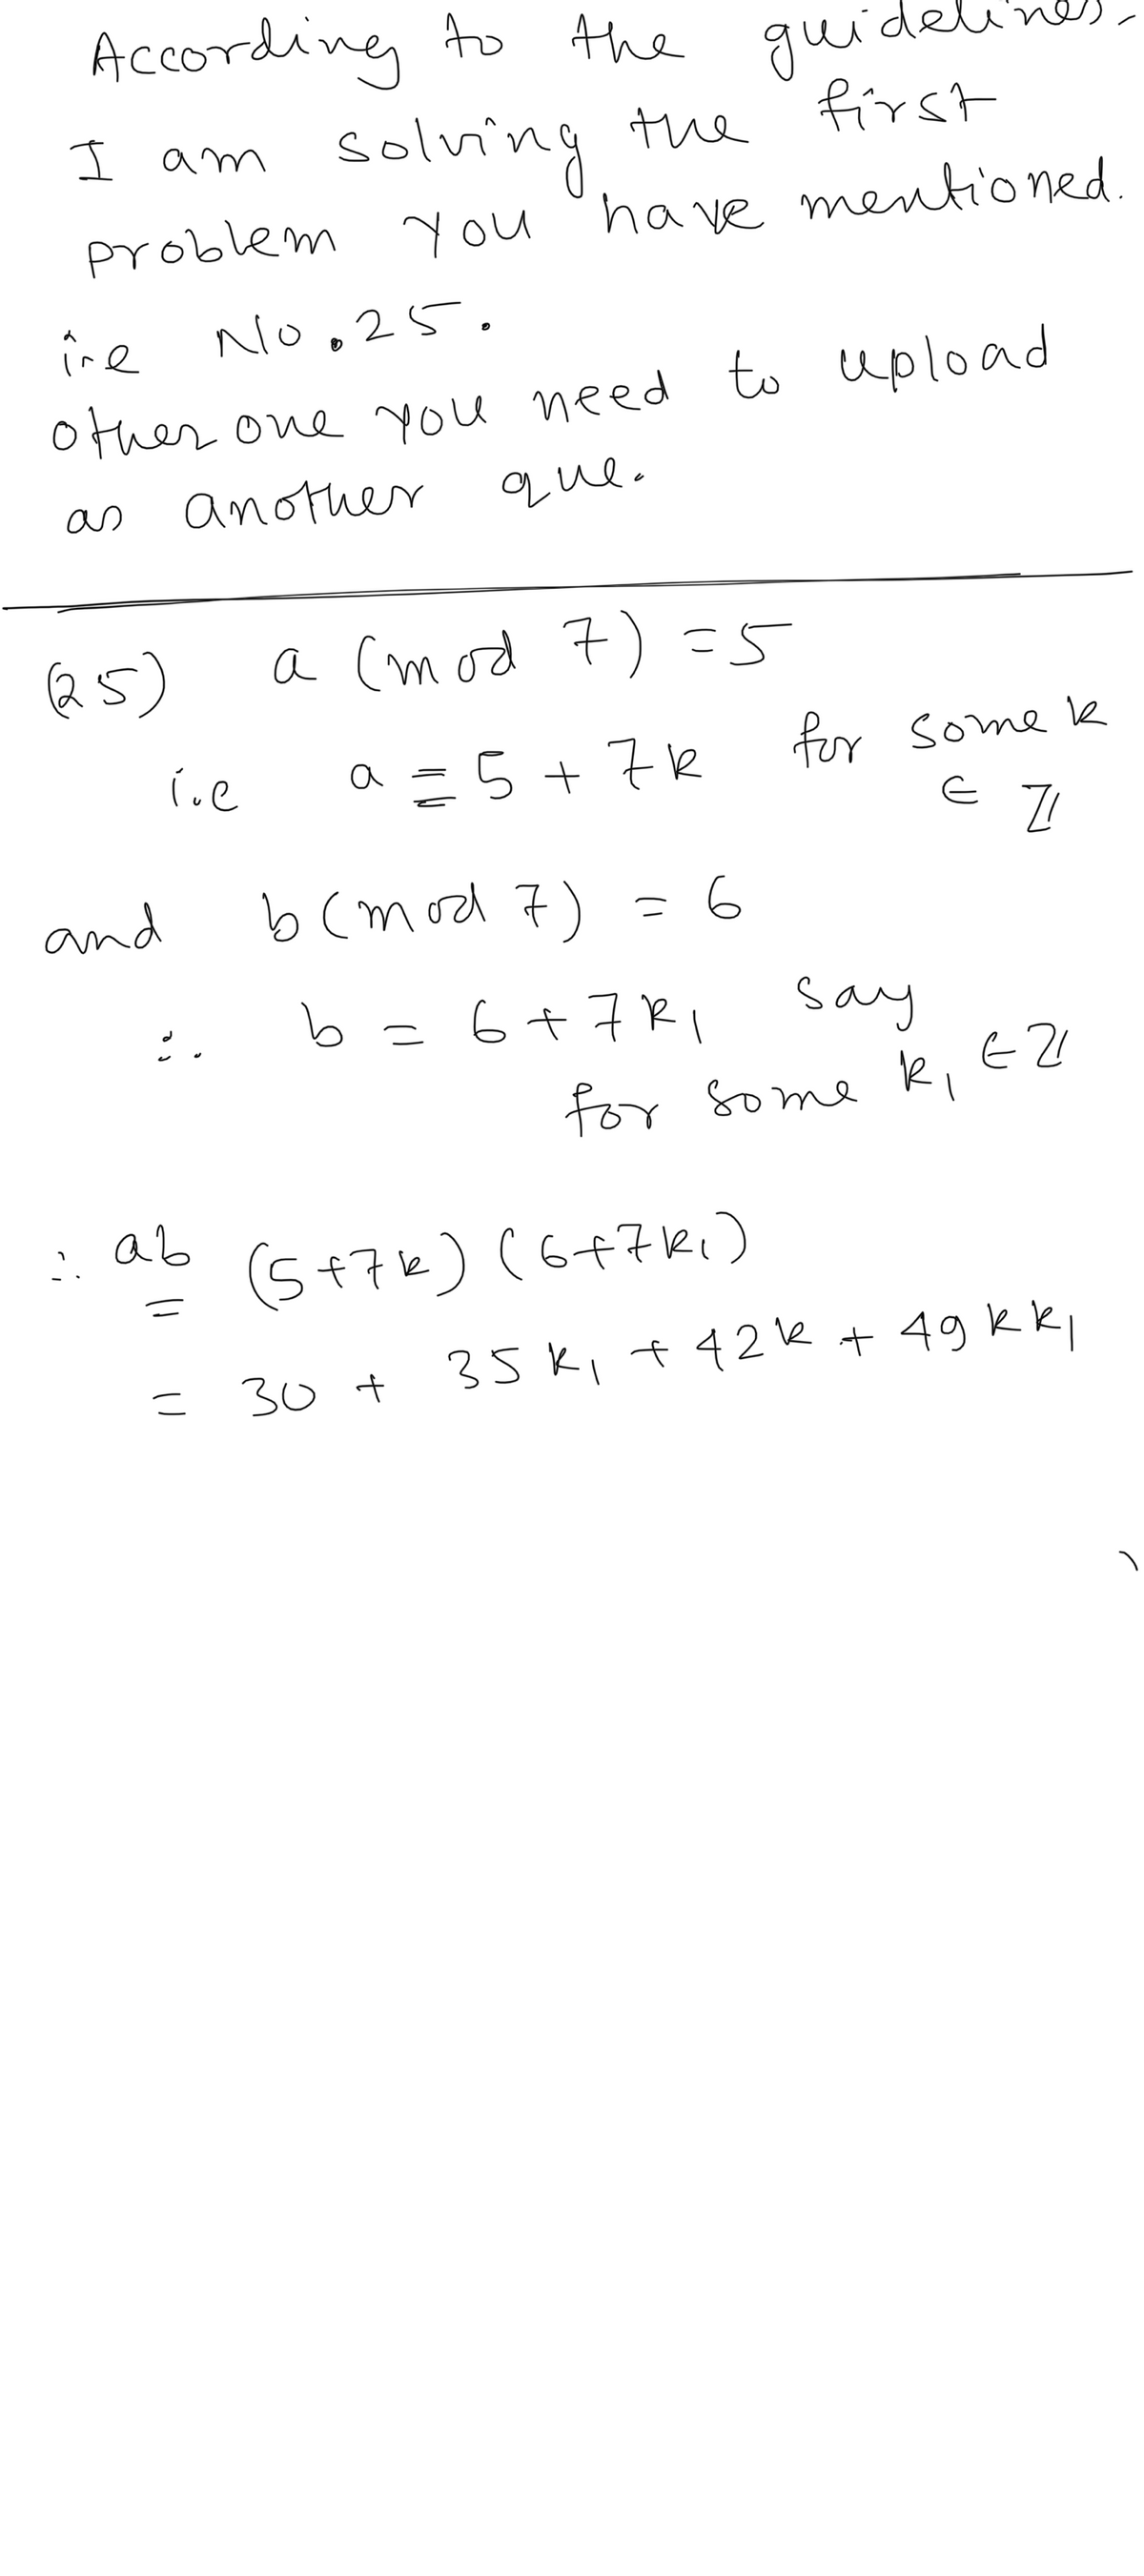 According to the guidelines.
I am solving the first
problem you have mentioned.
i.e No.25.
other one you need to upload
as another que.
(25) a (mod 7) = 5
i.e a = 5 + 7k for some k
∈ ℤ
and b(mod 7) = 6
∴ b = 6 + 7k₁ say
for some k₁ ∈ ℤ
∴ ab (5+7k) (6+7k₁)
=
= 30 + 35k₁ + 42k + 49kk₁